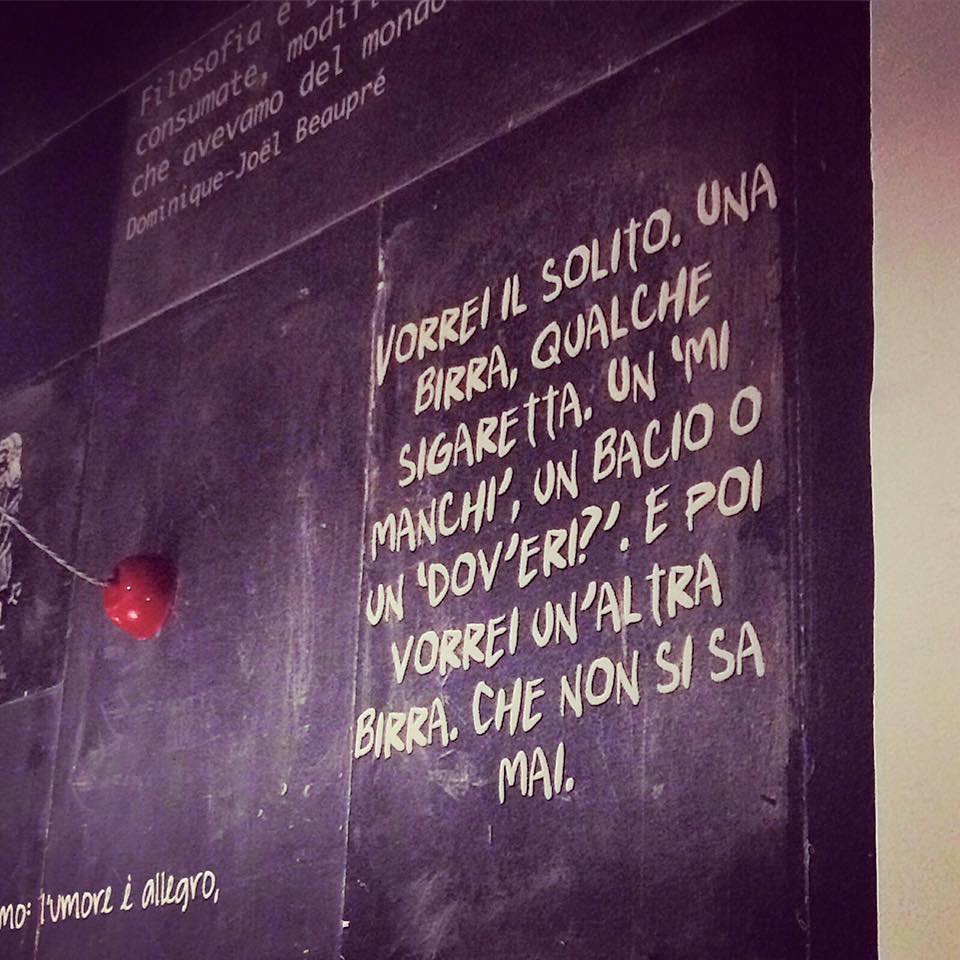 Filosofia e
consumate, modifi
che avevamo del mondo
Dominique-Joël Beaupré
VORREI IL SOLITO. UNA
BIRRA, QUALCHE
SIGARETTA. UN 'MI
MANCHI', UN BACIO O
UN 'DOV'ERI?'. E POI
VORREI UN'ALTRA
BIRRA. CHE NON SI SA
MAI.
mo: l'umore è allegro,